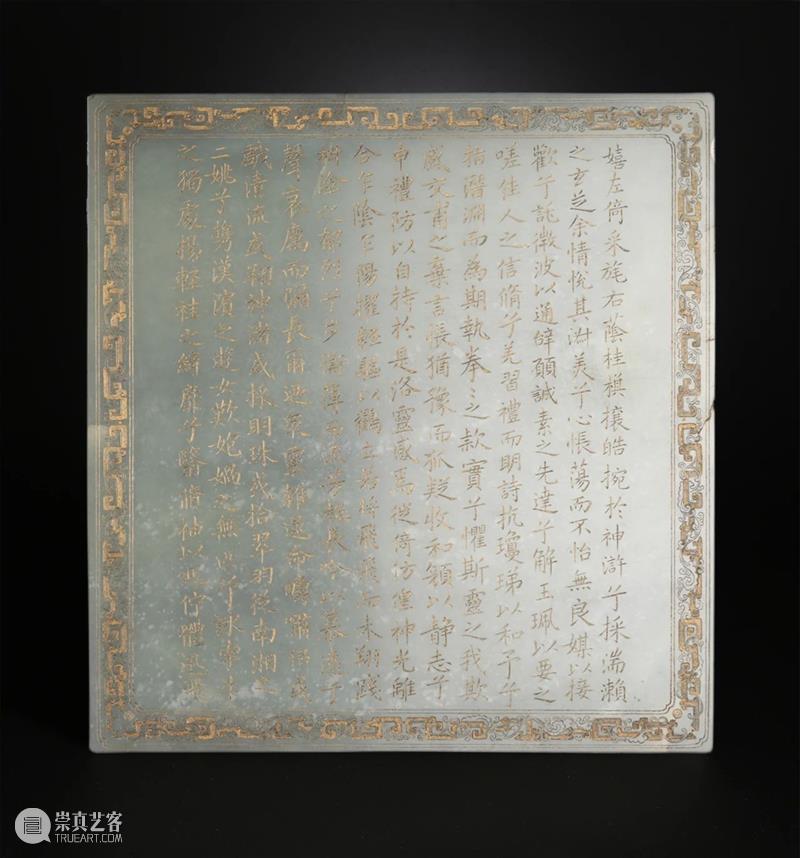 嬉左倚采旄右蔭桂旗攘皓捥於神滸兮採湍瀨
之玄芝余情悅其淑美兮心悵蕩而不怡無良媒以接
歡兮託微波以通辭願誠素之先達兮解玉珮以要之
嗟佳人之信脩兮羌習禮而明詩抗瓊珶以和予兮
指潛淵而為期執拳〻之款實兮懼斯靈之我欺
感交甫之棄言悵猶豫而狐疑收和顏以靜志兮
申禮防以自持於是洛靈感焉徙倚仿偟神光離
合乍陰乍陽擢輕軀以鶴立若將飛而未翔踐
椒塗之郁烈兮步蘅薄而流芳超長吟以慕遠兮
聲哀厲而彌長爾迺眾靈雜遝命疇嘯侶或
戲清流或翔神渚或採明珠或拾翠羽從南湘之
二姚兮攜漢濱之遊女歎匏媧之無匹兮詠牽牛
之獨處揚輕袿之綺靡兮翳脩袖以延佇體迅飛
崇真艺客
TRUEART.COM